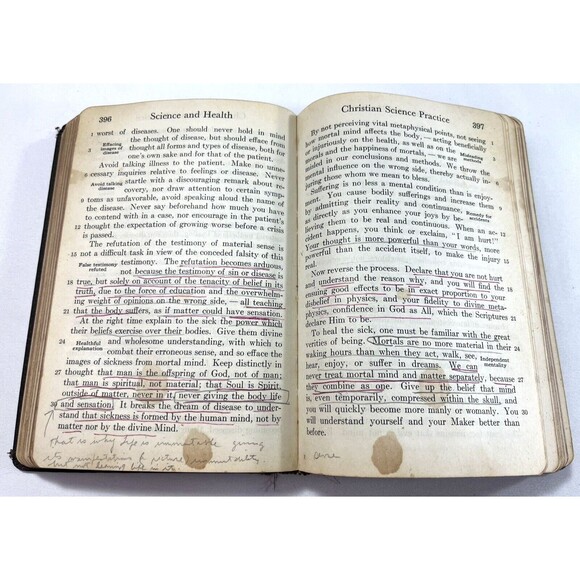 396 Science and Health
1 worst of diseases. One should never hold in mind
the thought of disease, but should efface from
Effacing images of disease
3 thought all forms and types of disease, both for
one's own sake and for that of the patient.
Avoid talking illness to the patient. Make no unne-
6 cessary inquiries relative to feelings or disease. Never
Avoid talking disease
startle with a discouraging remark about re-
covery, nor draw attention to certain symp-
9 toms as unfavorable, avoid speaking aloud the name of
the disease. Never say beforehand how much you have
to contend with in a case, nor encourage in the patient's
12 thought the expectation of growing worse before a crisis
is passed.
The refutation of the testimony of material sense is
15 not a difficult task in view of the conceded falsity of this
False testimony refuted
testimony. The refutation becomes arduous,
not because the testimony of sin or disease is
18 true, but solely on account of the tenacity of belief in its
truth, due to the force of education and the overwhelm-
ing weight of opinions on the wrong side, — all teaching
21 that the body suffers, as if matter could have sensation.
At the right time explain to the sick the power which
their beliefs exercise over their bodies. Give them divine
Healthful explanation
24 and wholesome understanding, with which to
combat their erroneous sense, and so efface the
images of sickness from mortal mind. Keep distinctly in
27 thought that man is the offspring of God, not of man;
that man is spiritual, not material; that Soul is Spirit,
outside of matter, never in it, never giving the body life
30 and sensation. It breaks the dream of disease to under-
stand that sickness is formed by the human mind, not by
matter nor by the divine Mind.
That is why Life is immutable giving
Christian Science Practice 397
By not perceiving vital metaphysical points, not seeing
how mortal mind affects the body, — acting beneficially
or injuriously on the health, as well as on the
Misleading methods
morals and the happiness of mortals, — we are
misled in our conclusions and methods. We throw the
mental influence on the wrong side, thereby actually in-
juring those whom we mean to bless.
Suffering is no less a mental condition than is enjoy-
ment. You cause bodily sufferings and increase them
by admitting their reality and continuance, as
Remedy for accidents
directly as you enhance your joys by be-
lieving them to be real and continuous. When an ac-
cident happens, you think or exclaim, "I am hurt!"
Your thought is more powerful than your words, more
powerful than the accident itself, to make the injury
real.
Now reverse the process. Declare that you are not hurt
and understand the reason why, and you will find the 18
ensuing good effects to be in exact proportion to your
disbelief in physics, and your fidelity to divine meta-
physics, confidence in God as All, which the Scriptures 21
declare Him to be.
To heal the sick, one must be familiar with the great
verities of being. Mortals are no more material in their 24
waking hours than when they act, walk, see,
Independent mentality
hear, enjoy, or suffer in dreams. We can
never treat mortal mind and matter separately, because 27
they combine as one. Give up the belief that mind
is, even temporarily, compressed within the skull, and
you will quickly become more manly or womanly. You 30
will understand yourself and your Maker better than
before.